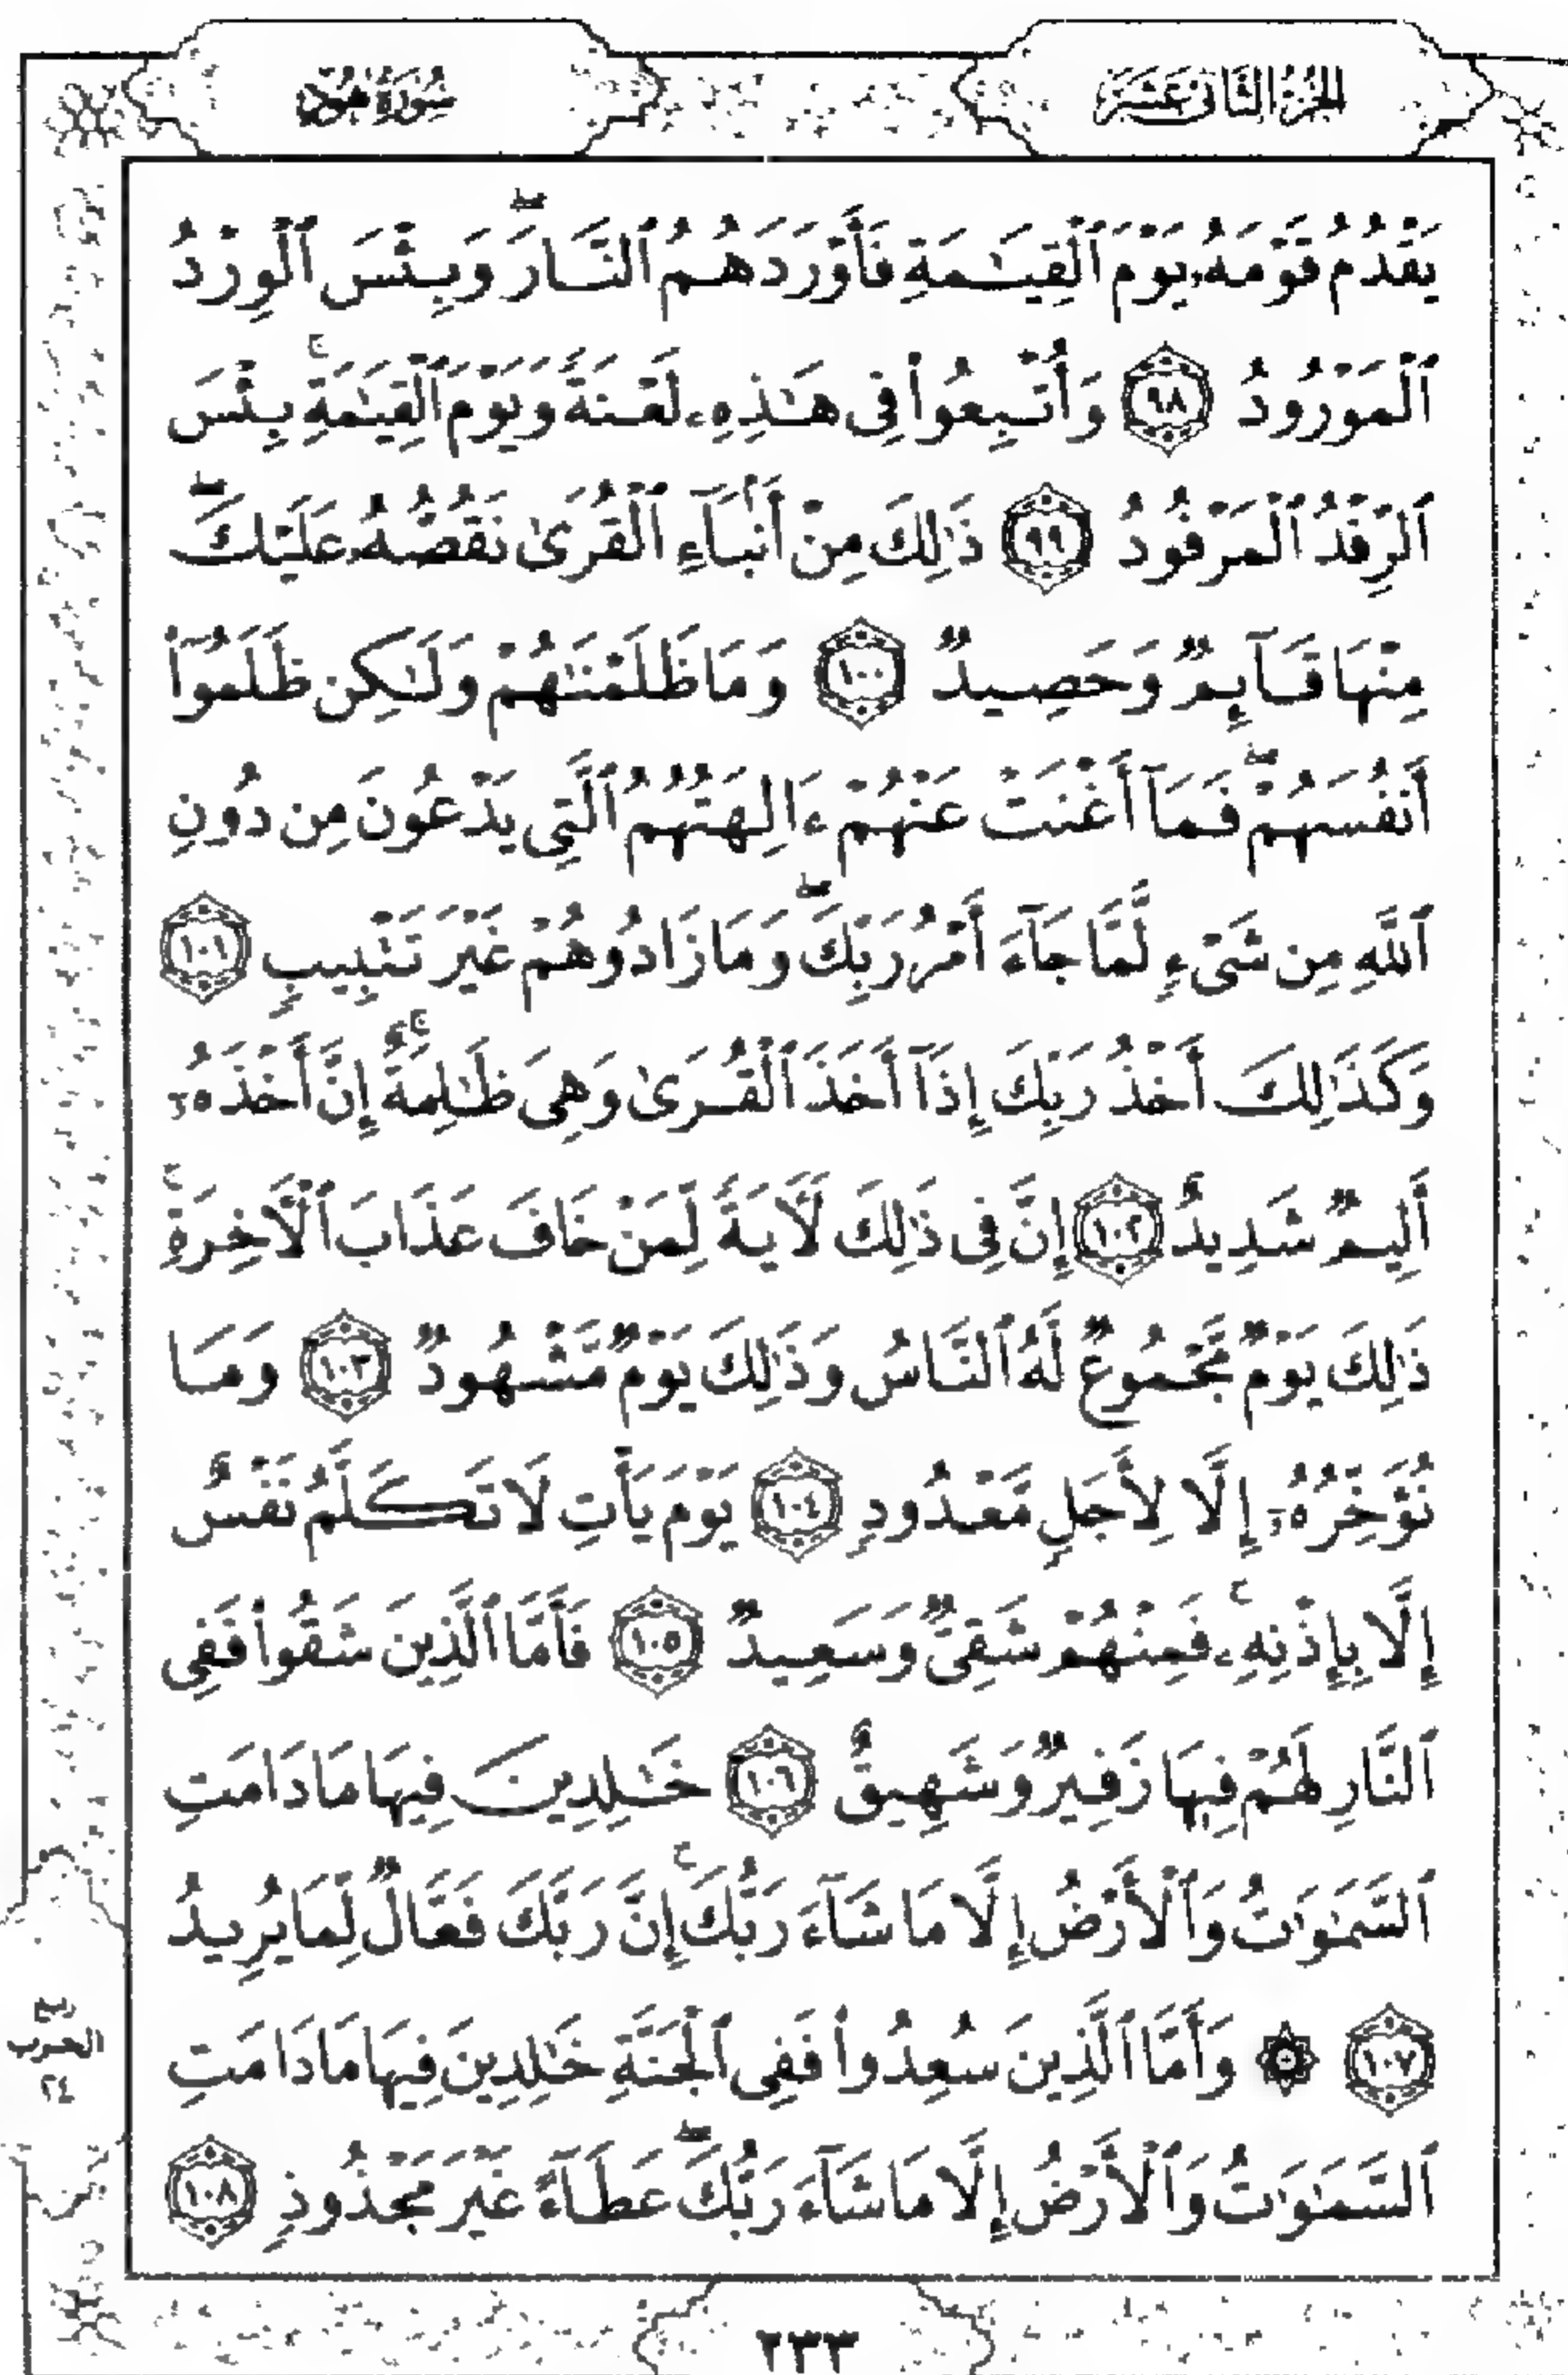 الجزء الثاني عشر
سورة هود
يَقْدُمُ قَوْمَهُۥ يَوْمَ ٱلْقِيَـٰمَةِ فَأَوْرَدَهُمُ ٱلنَّارَ ۖ وَبِئْسَ ٱلْوِرْدُ
ٱلْمَوْرُودُ ٩٨ وَأُتْبِعُوا۟ فِى هَـٰذِهِۦ لَعْنَةً وَيَوْمَ ٱلْقِيَـٰمَةِ ۚ بِئْسَ
ٱلرِّفْدُ ٱلْمَرْفُودُ ٩٩ ذَٰلِكَ مِنْ أَنۢبَآءِ ٱلْقُرَىٰ نَقُصُّهُۥ عَلَيْكَ ۖ
مِنْهَا قَآئِمٌ وَحَصِيدٌ ١٠٠ وَمَا ظَلَمْنَـٰهُمْ وَلَـٰكِن ظَلَمُوٓا۟
أَنفُسَهُمْ ۖ فَمَآ أَغْنَتْ عَنْهُمْ ءَالِهَتُهُمُ ٱلَّتِى يَدْعُونَ مِن دُونِ
ٱللَّهِ مِن شَىْءٍ لَّمَّا جَآءَ أَمْرُ رَبِّكَ ۖ وَمَا زَادُوهُمْ غَيْرَ تَتْبِيبٍ ١٠١
وَكَذَٰلِكَ أَخْذُ رَبِّكَ إِذَآ أَخَذَ ٱلْقُرَىٰ وَهِىَ ظَـٰلِمَةٌ ۚ إِنَّ أَخْذَهُۥٓ
أَلِيمٌ شَدِيدٌ ١٠٢ إِنَّ فِى ذَٰلِكَ لَـَٔايَةً لِّمَنْ خَافَ عَذَابَ ٱلْـَٔاخِرَةِ ۚ
ذَٰلِكَ يَوْمٌ مَّجْمُوعٌ لَّهُ ٱلنَّاسُ وَذَٰلِكَ يَوْمٌ مَّشْهُودٌ ١٠٣ وَمَا
نُؤَخِّرُهُۥٓ إِلَّا لِأَجَلٍ مَّعْدُودٍ ١٠٤ يَوْمَ يَأْتِ لَا تَكَلَّمُ نَفْسٌ
إِلَّا بِإِذْنِهِۦ ۚ فَمِنْهُمْ شَقِىٌّ وَسَعِيدٌ ١٠٥ فَأَمَّا ٱلَّذِينَ شَقُوا۟ فَفِى
ٱلنَّارِ لَهُمْ فِيهَا زَفِيرٌ وَشَهِيقٌ ١٠٦ خَـٰلِدِينَ فِيهَا مَا دَامَتِ
ٱلسَّمَـٰوَٰتُ وَٱلْأَرْضُ إِلَّا مَا شَآءَ رَبُّكَ ۚ إِنَّ رَبَّكَ فَعَّالٌ لِّمَا يُرِيدُ
١٠٧ ۞ وَأَمَّا ٱلَّذِينَ سُعِدُوا۟ فَفِى ٱلْجَنَّةِ خَـٰلِدِينَ فِيهَا مَا دَامَتِ
ٱلسَّمَـٰوَٰتُ وَٱلْأَرْضُ إِلَّا مَا شَآءَ رَبُّكَ ۖ عَطَآءً غَيْرَ مَجْذُوذٍ ١٠٨
الحزب
٢٤
٢٣٣